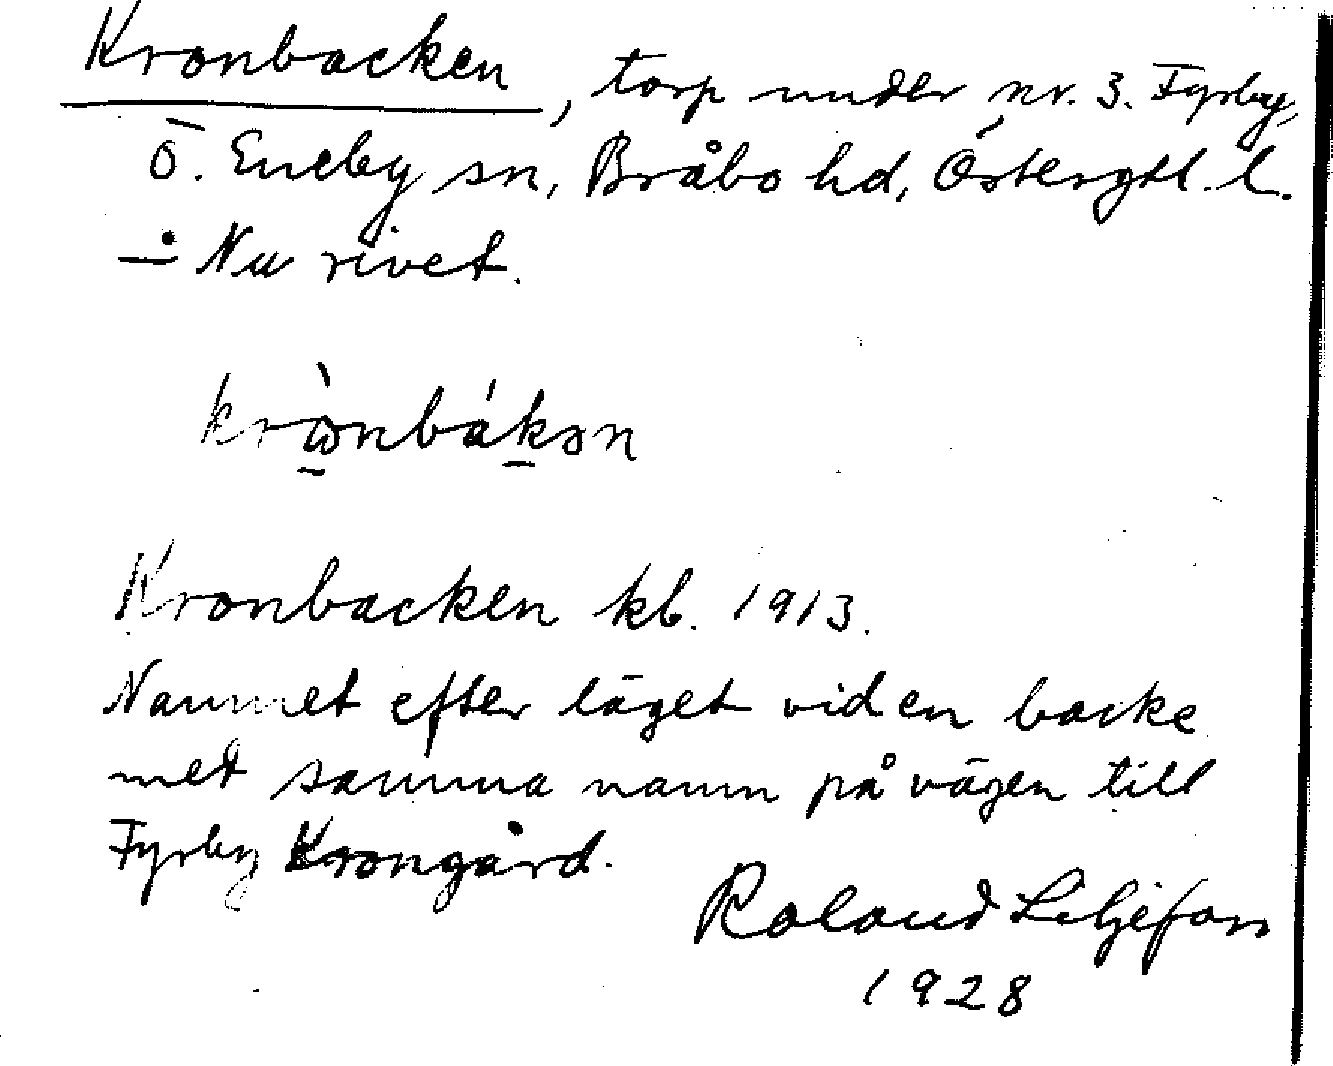 Kronbacken, torp under nr. 3. Fyrby,
Ö. Eneby sn, Bråbo hd, Östergtl. l.
÷ Nu rivet.
krὼ̠nbák̠ən
Kronbacken kb. 1913.
Namnet efter läget vid en backe
med samma namn på vägen till
Fyrby Krongård.
Roland Liljefors
1928